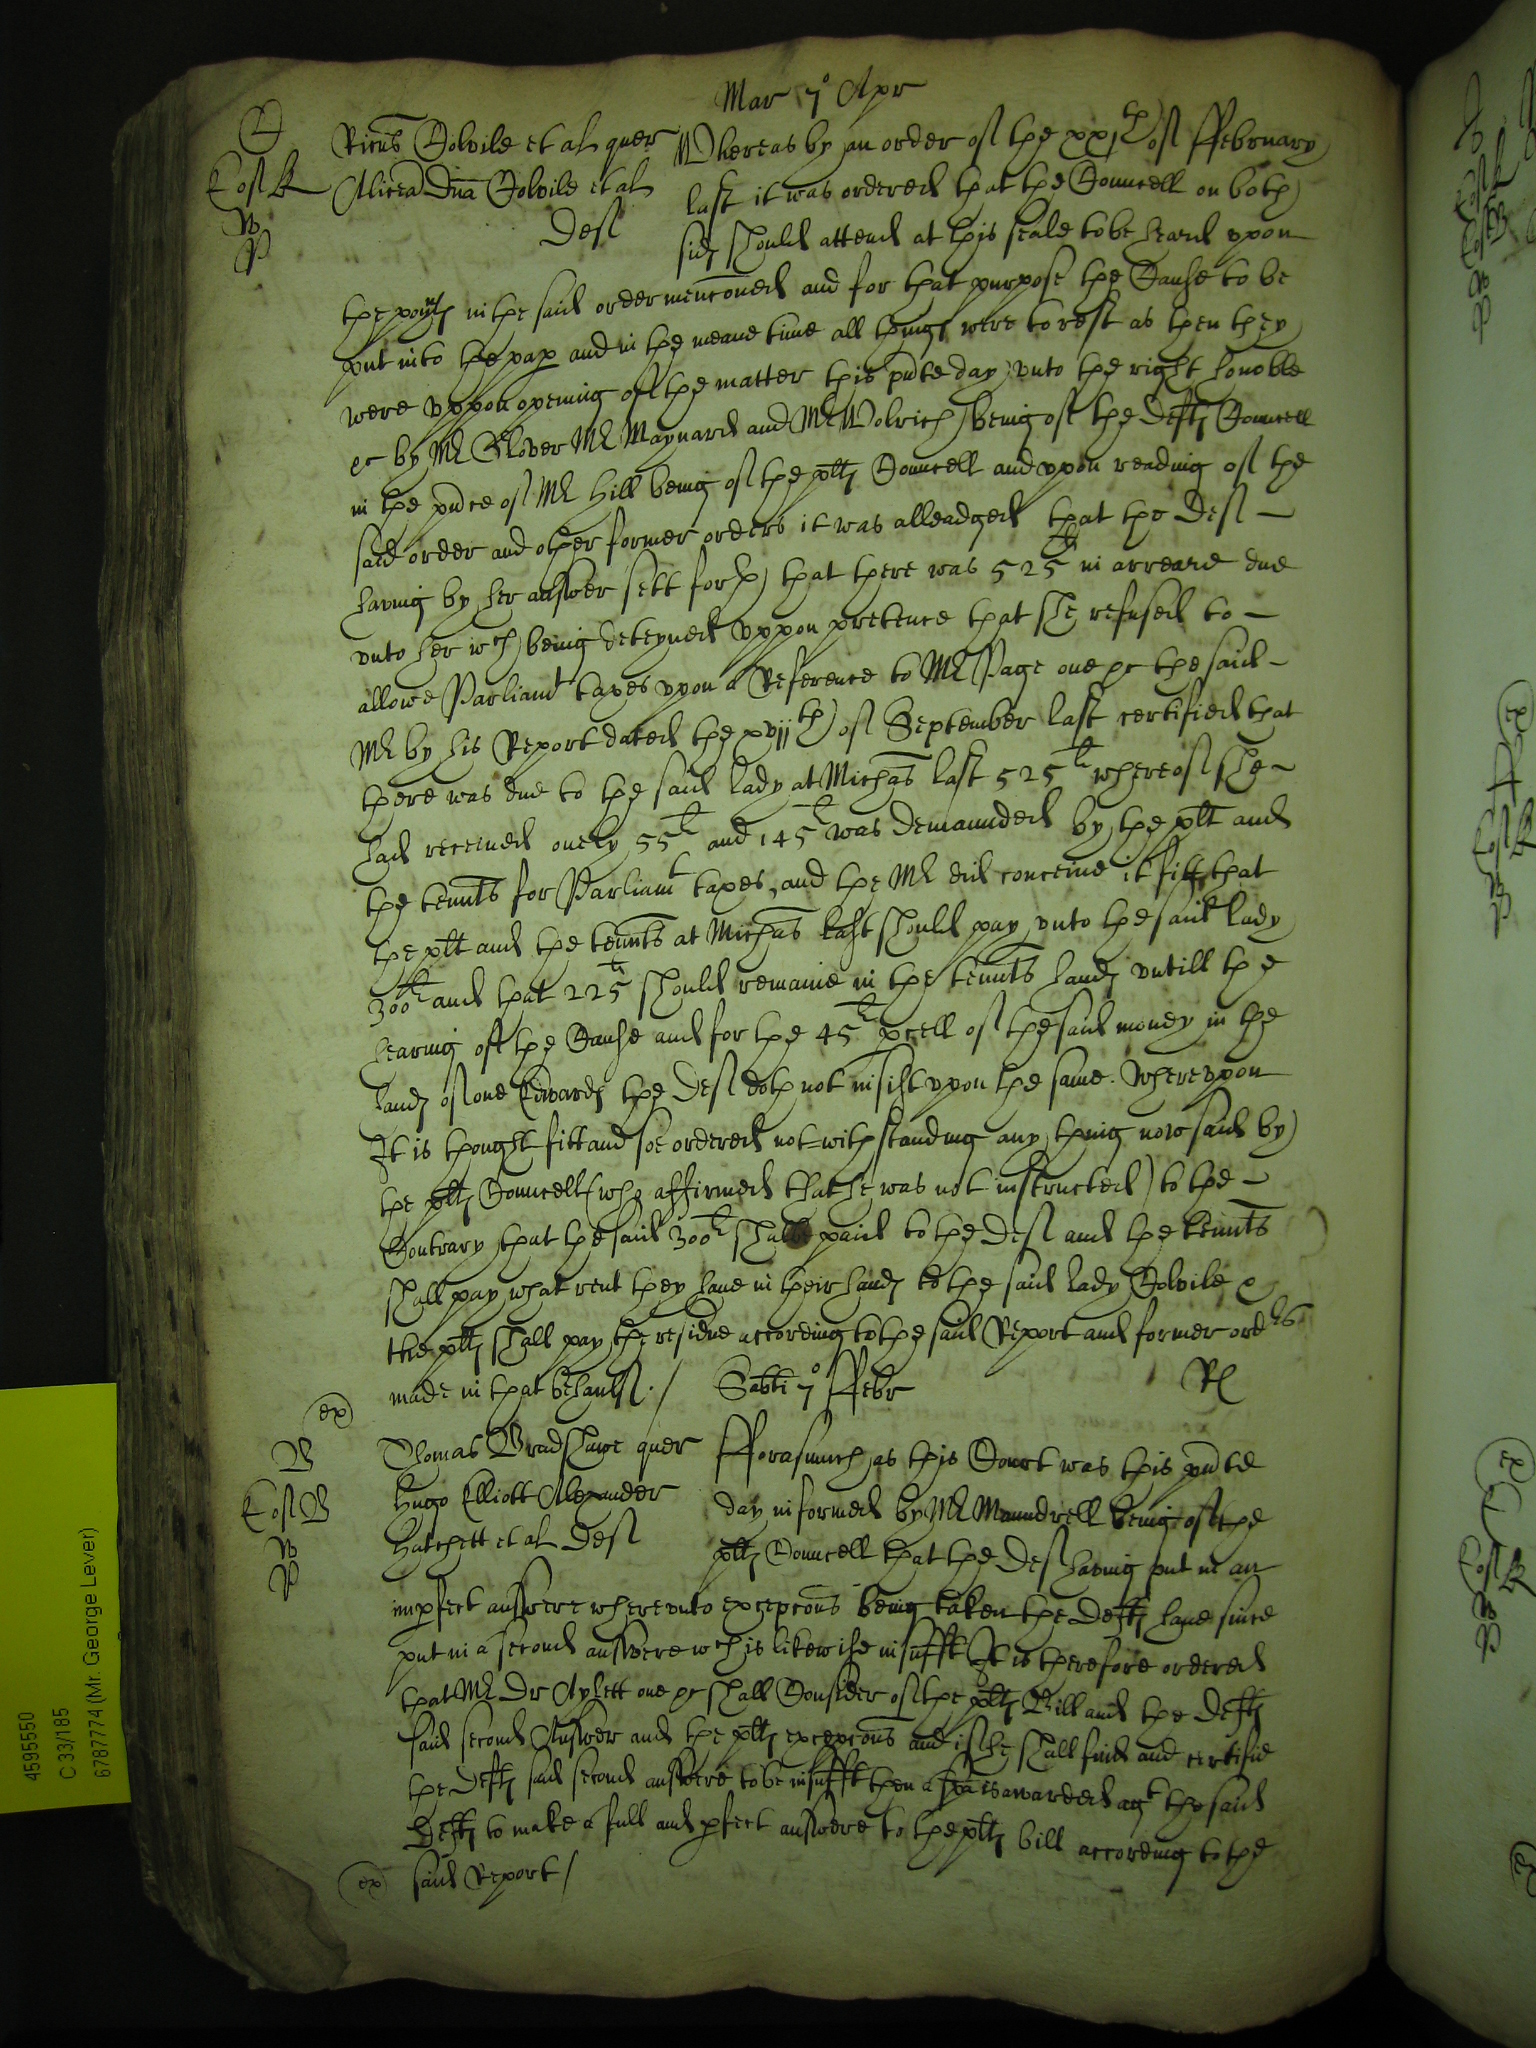 Mar 7° Apr
Ricūs Colvile et al quer Whereas by an order of the xxjth of ffebruary
Alicea Dn̄a Colvile et al last it was ordered that the Councell on both
Def sid[es] should attend at this seale to be heard vpon
the poynt[es] in the said order menc̄oned and for that purpose the Cause to be
put into the pap and in the meane time all thing[es] were to rest as then they
were vppon opening of the matter this pn̄te day vnto the right honoble
&c by Mr Glover Mr Maynard and Mr Wolrich being of the Deft[es] Councell
in the pn̄ce of Mr Hill being of the plt[es] Councell and vpon reading of the
said order and other former orders it was alleadged that the Def
having by her answer sett forth that there was 525li in arreare due
vnto her wch being deteyned vppon pretence that she refused to
allowe Parliamt taxes vpon a Reference to Mr Page one &c the said
Mr by his Report dated the xvijth of September last certified that
there was due to the said lady at Michās last 525li whereof she
had received onely 55li and 145li was demaunded by the plt and
the tenn̄ts for Parliamt taxes, and the Mr did conceive it fitt that
the plt and the tenn̄ts at Michās last should pay vnto the said lady
300li and that 225li should remaine in the tenn̄ts hand[es] vntill the
hearing of the Cause and for the 45li pcell of the said money in the
hand[es] of one Edward[es] the Def doth not insist vpon the same. Wherevpon
It is thought fitt and soe ordered not-withstanding any thing now said by
the plt[es] Councell (who affirmed that he was not instructed) to the
Contrary that the said 300li shalbe paid to the Def and the tenn̄ts
shall pay what rent they have in their hand[es] to the said lady Colvile &
the plt[es] shall pay the residue according to the said Report and former ordrs
made in that behaulf./ Sabti 7° ffebr Rl
ex
Thomas Bradshawe quer fforasmuch as this Court was this pn̄te
Hugo Elliott Alexander day informed by Mr Maundrell being of the
Hatchett et al Def plt[es] Councell that the Def having put in an
impfect answere wherevnto excepc̄ons being taken the Deft[es] have since
put in a second answere wch is likewise insufft It is therefore ordered
that Mr Dr Aylett one &c shall Consider of the plt[es] Bill and the Deft[es]
said second Answer and the plt[es] excepc̄ons and if he shall find and certifie
the Deft[es] said second answere to be insufft then a spa is awarded agt the said
Deft[es] to make a full and pfect answere to the plt[es] bill according to the
ex said Report/
4595550
C 33/185
6787774 (Mr. George Lever)